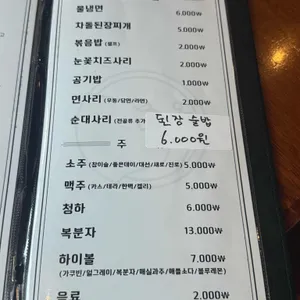 물냉면 6.000₩
차돌된장찌개 5.000₩
볶음밥 (셀프) 2.000₩
눈꽃치즈사리 2.000₩
공기밥 1.000₩
면사리 (우동/당면/라면) 2.000₩
순대사리 (전골류 추가 된장 술밥
6.000원
주
소주 (참이슬/좋은데이/대선/새로/진로) 5.000₩
맥주 (카스/테라/한맥/켈리) 5.000₩
청하 6.000₩
복분자 13.000₩
하이볼 7.000₩
(가쿠빈/얼그레이/복분자/매실과주/애플소다/블루레몬)
음료 2.000₩